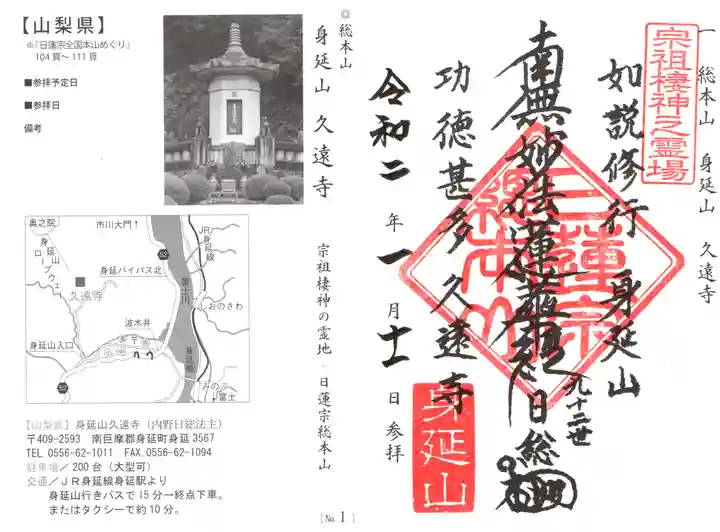 【山梨県】
※『日蓮宗全国本山めぐり』
104頁〜111頁
■参拝予定日
■参拝日
備考
◎総本山
身延山 久遠寺
宗祖棲神の霊地・日蓮宗総本山
奥之院
市川大門↑
52
JR身延線
身延山ロープウェイ
身延バイパス北
久遠寺
富士川
しおのさわ
波木井
身延山入口
みのぶ
富士
52
[山梨県] 身延山久遠寺(内野日総法主)
〒409-2593 南巨摩郡身延町身延3567
TEL 0556-62-1011 FAX 0556-62-1094
駐車場/200台(大型可)
交通/JR身延線身延駅より
身延山行きバスで15分→終点下車。
またはタクシーで約10分。
[No.1]
一 総本山 身延山 久遠寺
宗祖棲神之霊場
如説修行 身延山
南無妙法蓮華経
九十二世
日総
功徳甚多 久遠寺
令和二年一月十一日参拝
日蓮宗
総本山
身延山